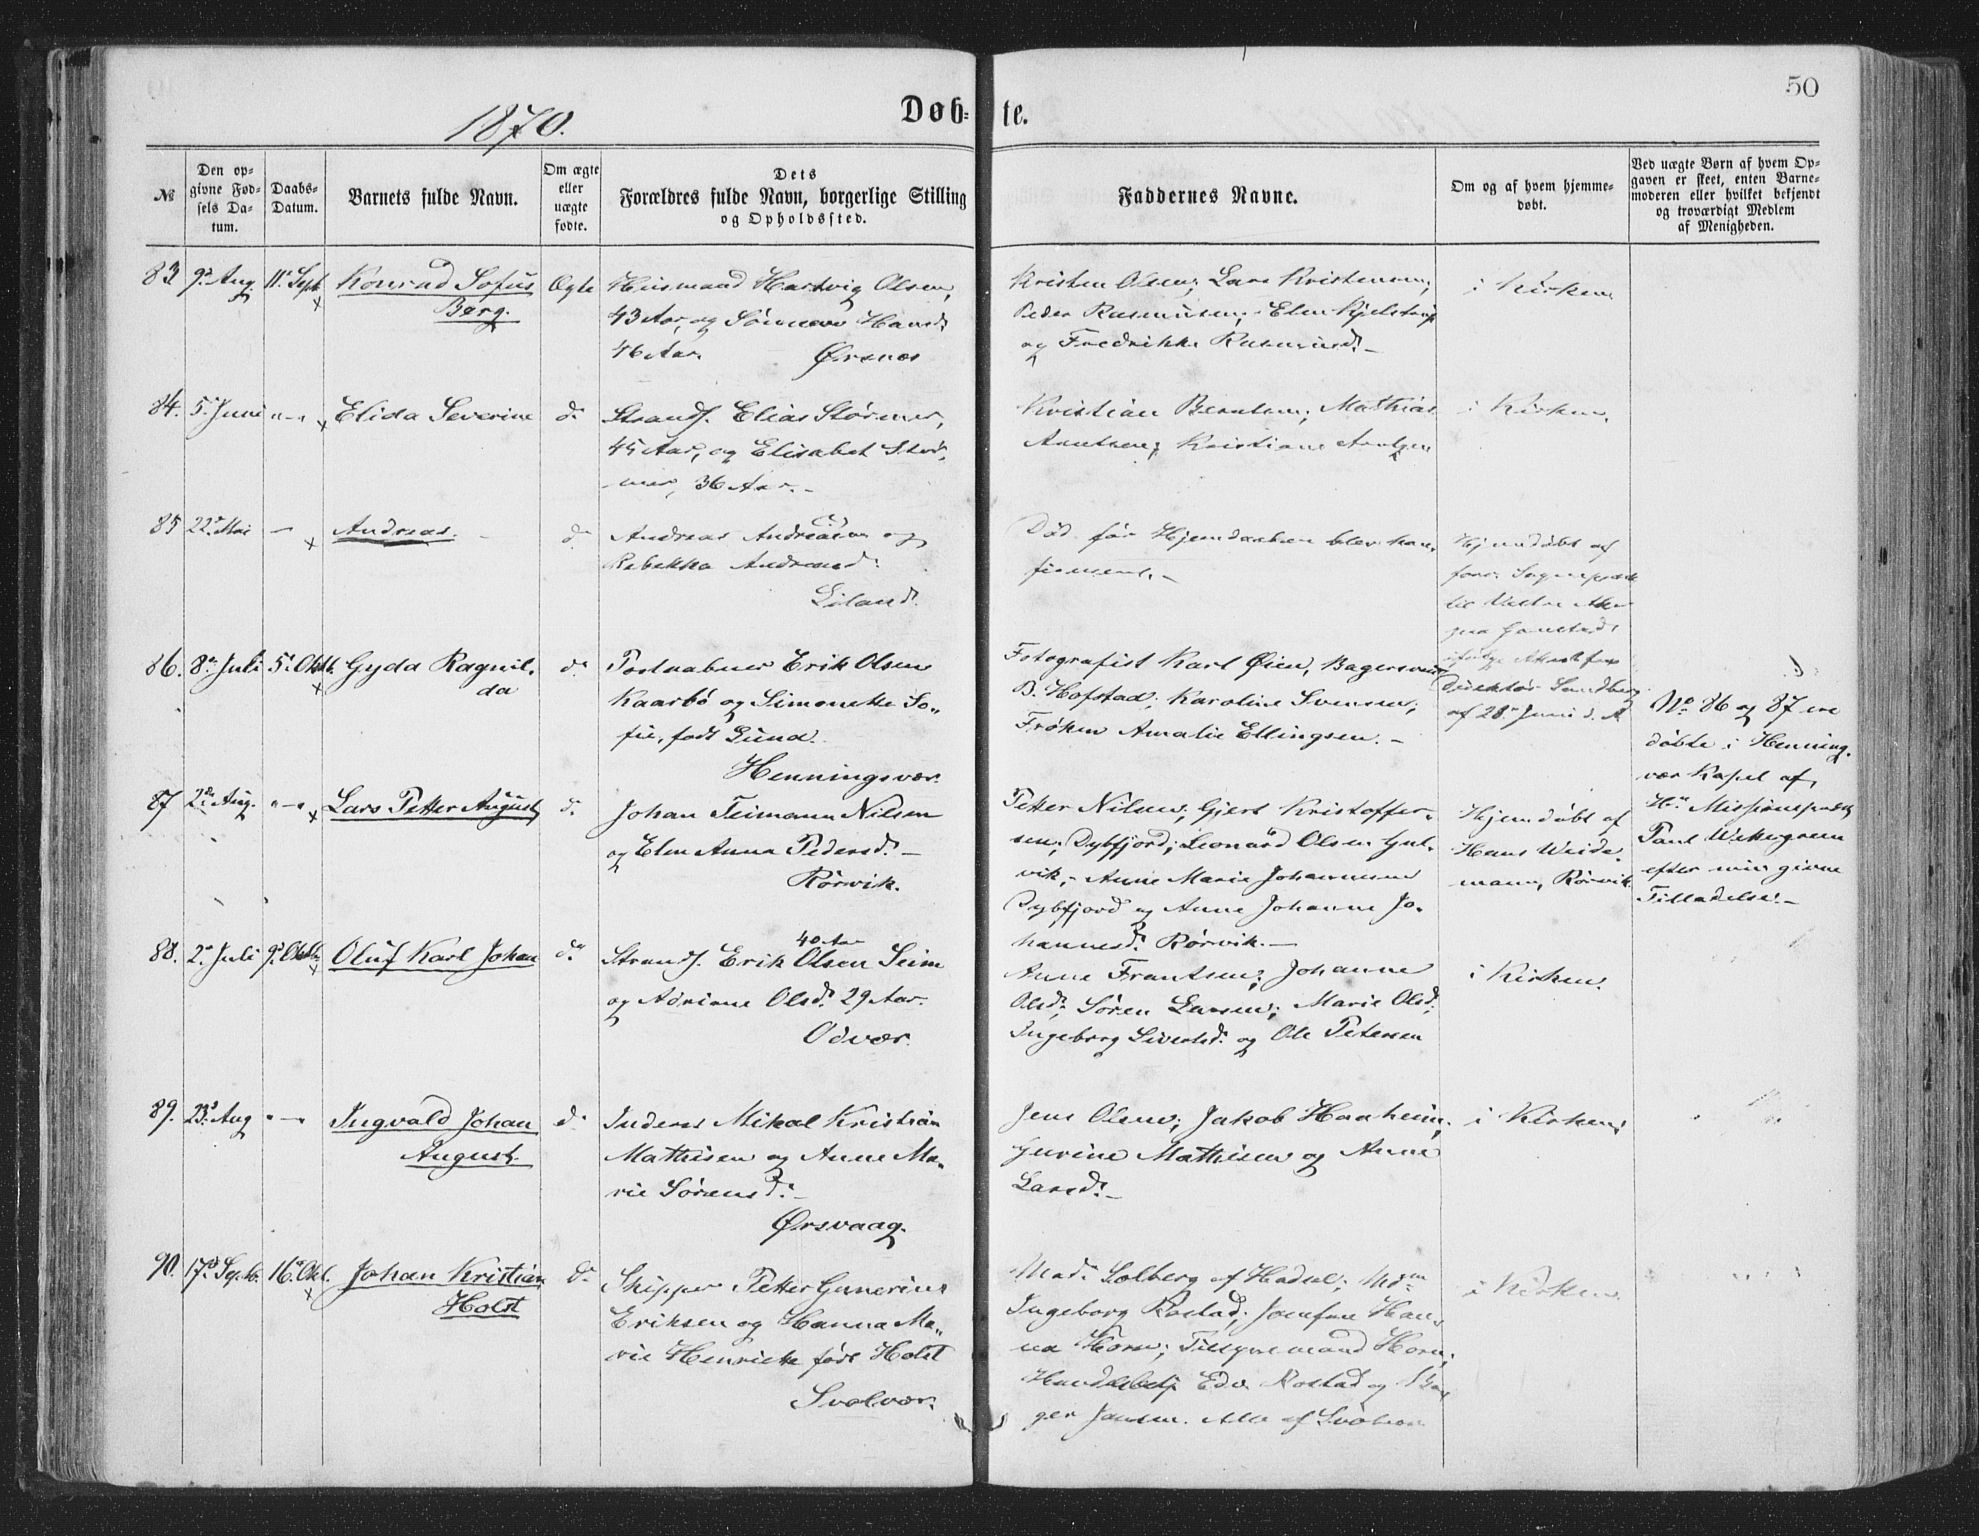 50
1870.
Døb-te.
№
Den op-
givne Fød-
sels Da-
tum.
Daabs-
Datum.
Barnets fulde Navn.
Om ægte
eller
uægte
fødte.
Dets
Forældres fulde Navn, borgerlige Stilling
og Opholdssted.
Faddernes Navne.
Om og af hvem hjemme-
døbt.
Ved uægte Børn af hvem Op-
gaven er skeet, enten Barne-
moderen eller hvilket bekjendt
og troværdigt Medlem
af Menigheden.
83 9. Aug. 11. Sept. Konrad Sofus
Berg.
Ægte
Huusmand Hartvig Olsen,
43 Aar, og Hansd:
46 Aar. Ørsnes
Kristen Olsen; Lars Kristensen;
Peder Rasmussen; Elen Kjelstrup
og Fredrikke Rasmusd. –
i Kirken
84. 5. Juni "–" Elida Severine do
Strands. Elias Størmer,
45 Aar, og Elisabet Stør-
mer, 36 Aar. –
Kristian Berntsen; Mathias
Arntsen; Kristiane Arntzen
i Kirken.
85 22. Mai – Andreas. – do
Andreas Andreassen og
Rebekka Andreasd:
Liland.
Død før Hjemdaaben blev kon-
firmeret. –
Hjemdøbt af
til Vestre Aker
direktør Sandberg
af 28. Juni d. A.
86. 8. Juli 5. Oktb. Gyda Ragnil-
da
do
Postaabner Erik Olsen
Kaarbø og Simonette So-
fie, født Lund.
Henningsvær.
Fotografist Karl Øien, Bagersvend
B. Hofstad; Karoline Svensen;
Frøken Amalie Ellingsen. –
No 86 og 87 ere
døbte i Hennings-
vær Kapel af
Hr. Missionsprest
Paul
efter min givne
Tilladelse. –
87 2. Aug. "–" Lars Petter August do
Johan Teimann Nilsen
og Elen Anna Pedersd. –
Rørvik.
Petter Nilsen; Gjert Kristoffer-
sen, Dybfjord; Leonard Olsen Gul-
vik; Anne Marie Johannesen
Dybfjord og Anne Johanne Jo-
hannesd. Rørvik. –
Hjemdøbt af
Hans Weide-
mann, Rørvik.
88. 2. Juli 9. Oktb. Oluf Karl Johan do
40 Aar
Strands. Erik Olsen Seim
og Adriane Olsd. 29 Aar.
Odvær.
Anne Frantsen; Johanne
Olsd; Søren Larsen; Marie Olsd;
Ingeborg Sivertsd. og Ole Petersen
i Kirken.
89. 23. Aug "–" Ingvald Johan
August.
do
Inderst Mikal Kristian
Mathisen og Anne Ma-
rie Sørensd. –
Ørsvaag.
Jens Olsen; Jakob Haaheim;
Gurine Mathisen og Anne
Larsd. –
i Kirken
90. 17. Sept. 16. Okt. Johan Kristian
Holst
do
Skipper Petter Gunerius
Eriksen og Hanna Ma-
rie Henriette født Holst
Svolvær.
Mad. Solberg af Hadsel; Mdm
Ingeborg Rostad; Jomfru Han-
na Horn; Horn;
Edv. Rostad og
Jensen. Alle af Svolvær
i Kirken